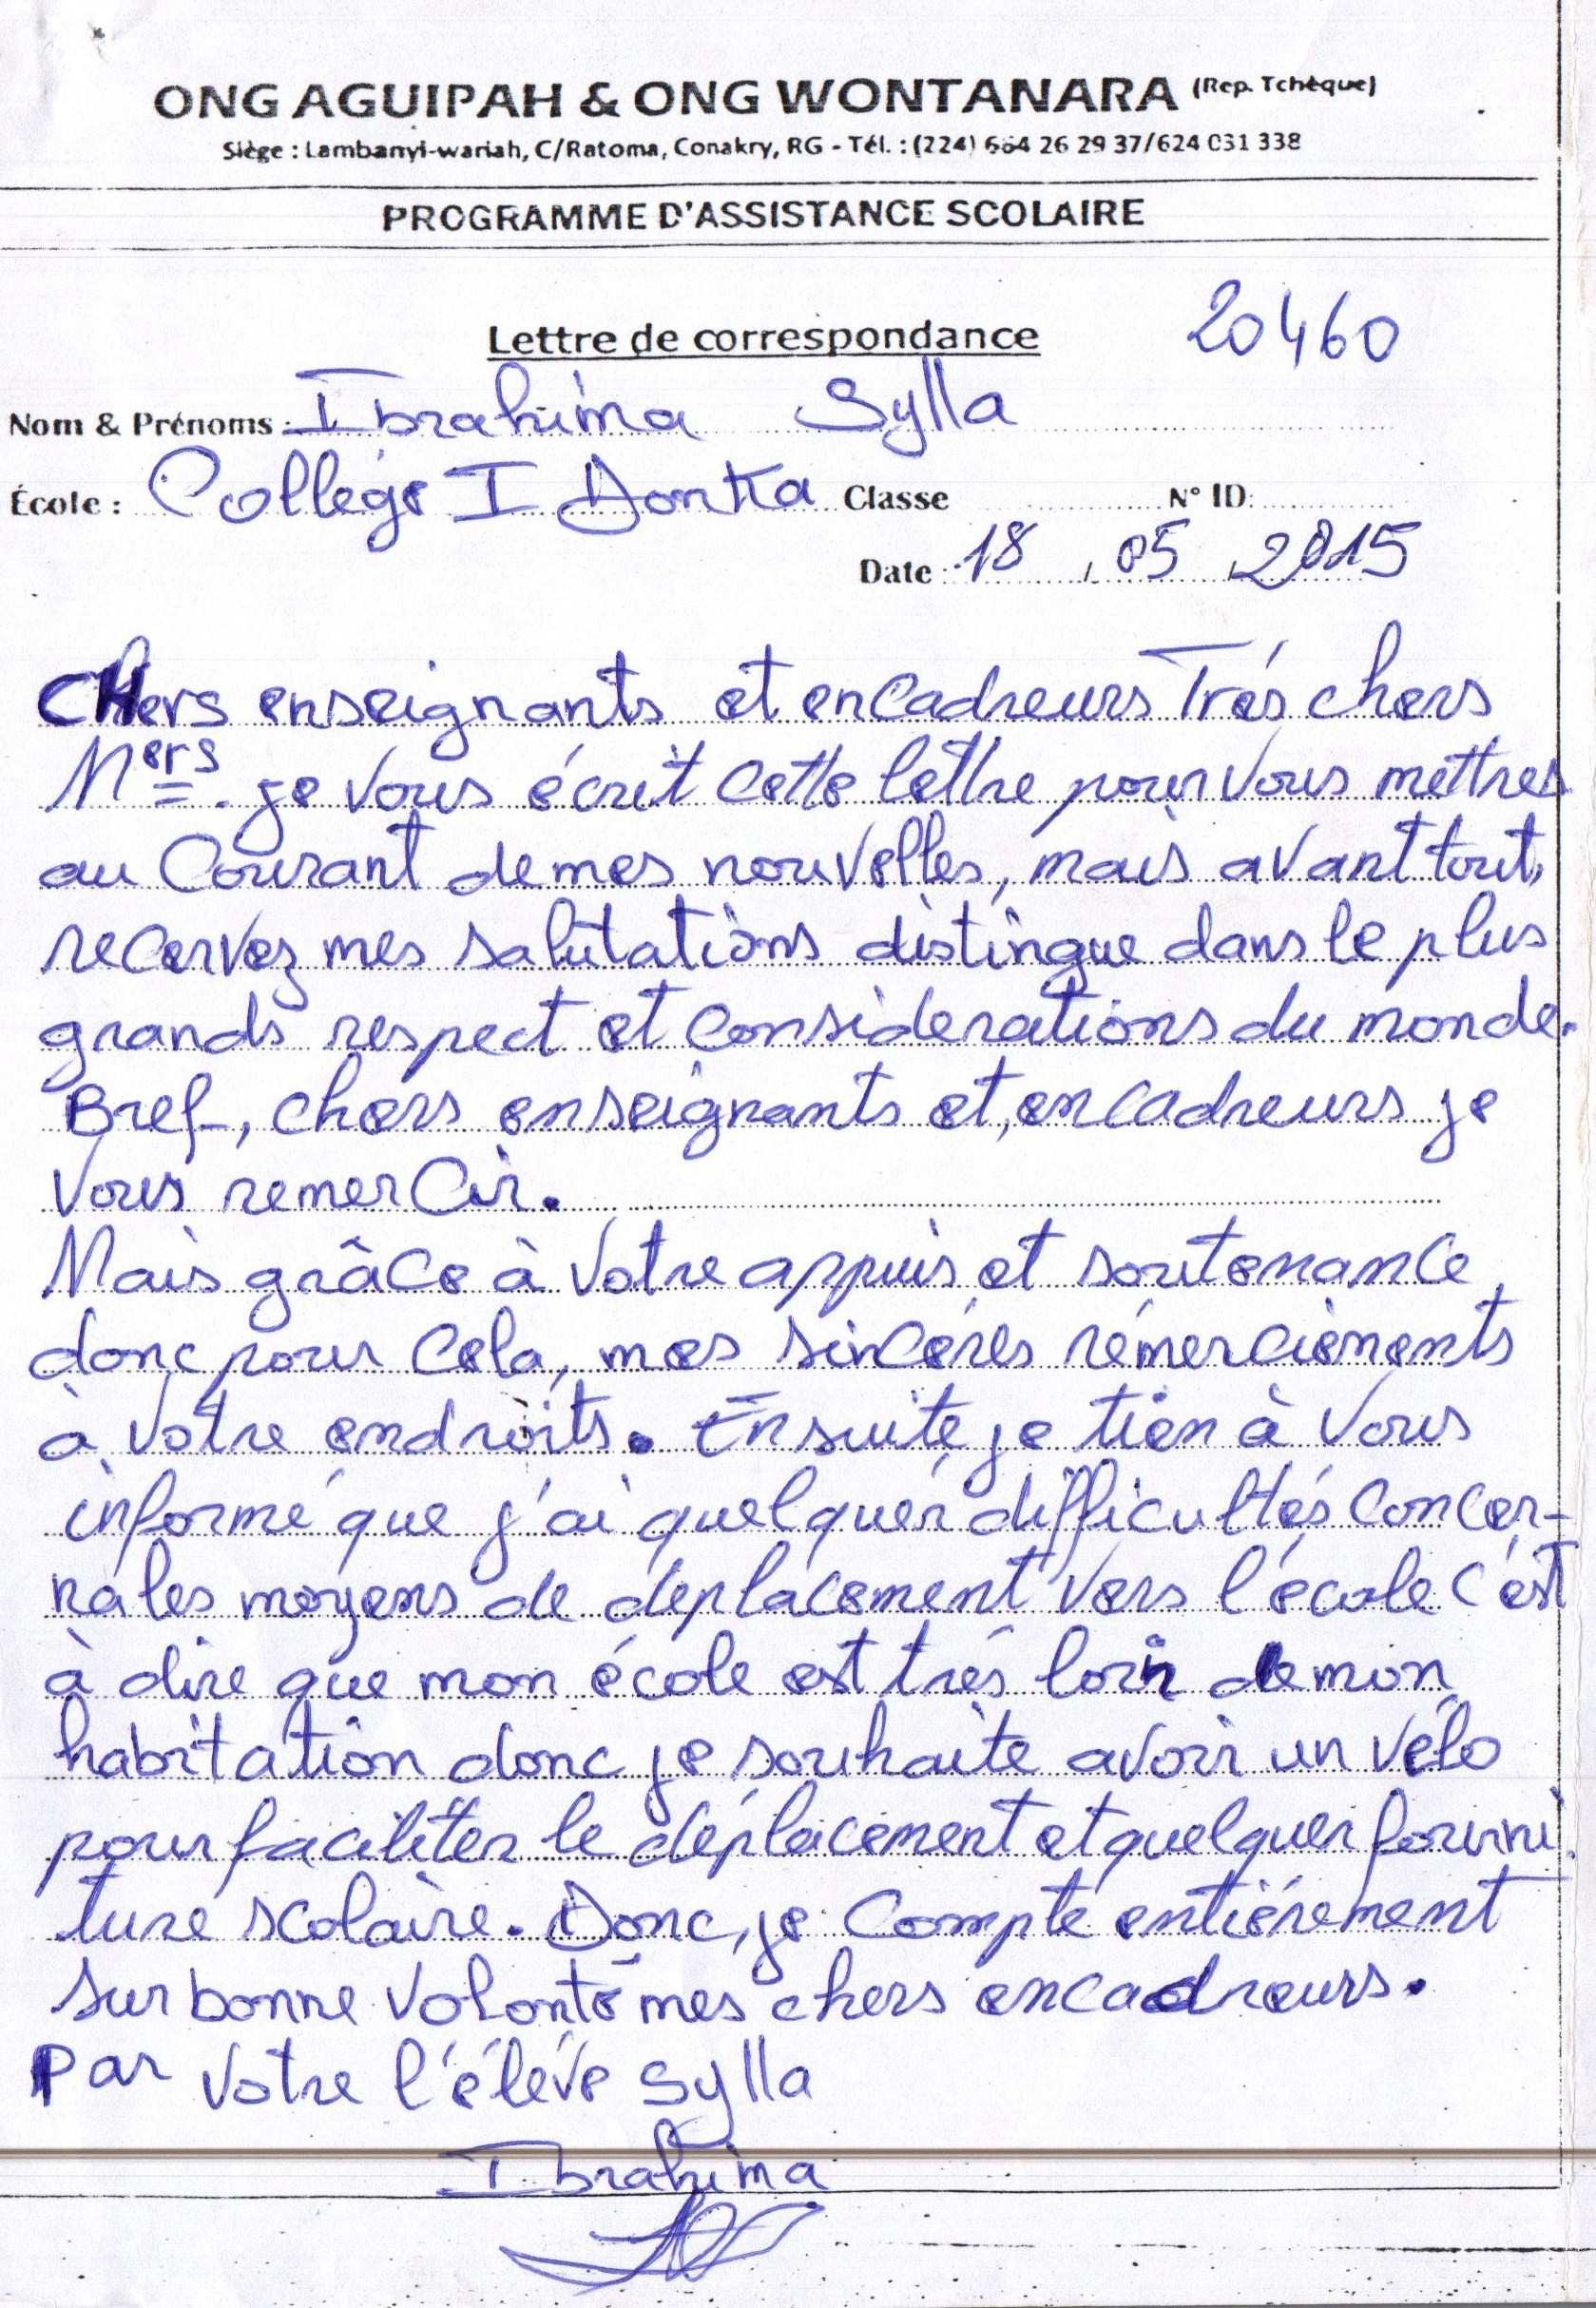 ONG AGUIPAH & ONG WONTANARA (Rep. Tchèque)
Siège : Lambanyi-wariah, C/Ratoma, Conakry, RG - Tél. : (224) 664 26 29 37/624 031 338
PROGRAMME D'ASSISTANCE SCOLAIRE
Lettre de correspondance 20460
Nom & Prénoms : Ibrahima Sylla
École : Collège I Donka Classe N° ID:
Date : 18 / 05 / 2015
CHers enseignants et encadreurs Trés chers
Mers. je vous écrit cette lettre pour vous mettres
au Courant de mes nouvelles, mais avant tout,
recervez mes salutations distingue dans le plus
grands respect et considerations du monde.
Bref, chers enseignants et, encadreurs je
vous remercir.
Mais grâce à votre appuis et soutenance,
donc pour cela, mes sincéres rémerciements
à votre endroits. Ensuite je tien à vous
informé que j'ai quelquer difficultés concer-
na les moyens de déplacement vers l'école c'est
à dire que mon école est trés loin de mon
habitation donc je souhaite avoir un vélo
pour faciliter le déplacement et quelquer fourni.
ture scolaire. Donc, je compte entiérement
sur bonne volonté mes chers encadreurs.
Par votre l'éléve Sylla
Ibrahima